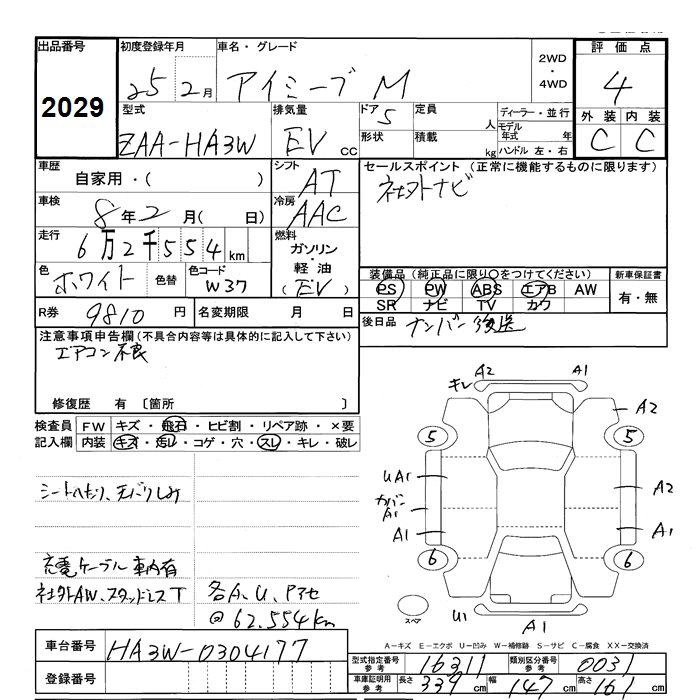 出品番号 初度登録年月 車名・グレード 評価点
2029 25 2月 アイミーブ M 2WD・4WD 4
型式 排気量 ドア 定員 ディーラー・並行 外装 内装
ZAA-HA3W EV cc 5 人 モデル年式 年 C C
形状 積載 kg ハンドル 左・右
車歴 シフト セールスポイント(正常に機能するものに限ります)
自家用・( ) AT 社外ナビ
車検 冷房
8年2月( 日) AAC
走行 燃料
6万2千554km ガソリン・軽油
色 色替 色コード (EV) 装備品(純正品に限り○をつけてください) 新車保証書
ホワイト W37 PS PW ABS エアB AW 有・無
SR ナビ TV カワ
R券 9810円 名変期限 月 日 後日品 ナンバー後送
注意事項申告欄(不具合内容等は具体的に記入して下さい)
エアコン不良
修復歴 有 〔箇所 〕
検査員記入欄 FW キズ・飛石・ヒビ割・リペア跡・×要
内装 キズ・汚レ・コゲ・穴・スレ・キレ・破レ
シートへたり、天バリしみ
充電ケーブル車内有
社外AW、スタッドレスT
各A、U、Pアセ
@62.554km
キレ A2 A1
A2
5 5
UA1 A2
カバーA1
A1 A1
6 6
スペア U1 A1
A-キズ E-エクボ U-凹み W-補修跡 S-サビ C-腐食 XX-交換済
車台番号 HA3W-0304177
型式指定番号 参考 16211 類別区分番号 参考 0031
登録番号 車庫証明用 参考 長さ 339cm 幅 147cm 高さ 161cm